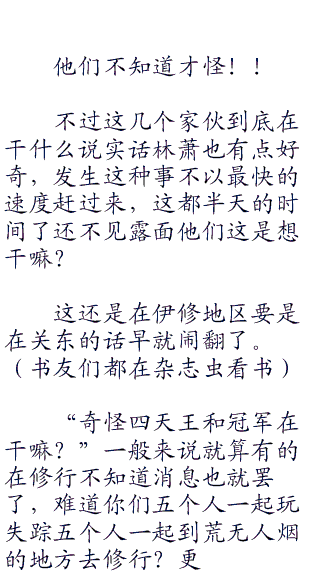 他们不知道才怪！！
不过这几个家伙到底在
干什么说实话林萧也有点好
奇，发生这种事不以最快的
速度赶过来，这都半天的时
间了还不见露面他们这是想
干嘛？
这还是在伊修地区要是
在关东的话早就闹翻了。
（书友们都在杂志虫看书）
“奇怪四天王和冠军在
干嘛？”一般来说就算有的
在修行不知道消息也就罢
了，难道你们五个人一起玩
失踪五个人一起到荒无人烟
的地方去修行？更